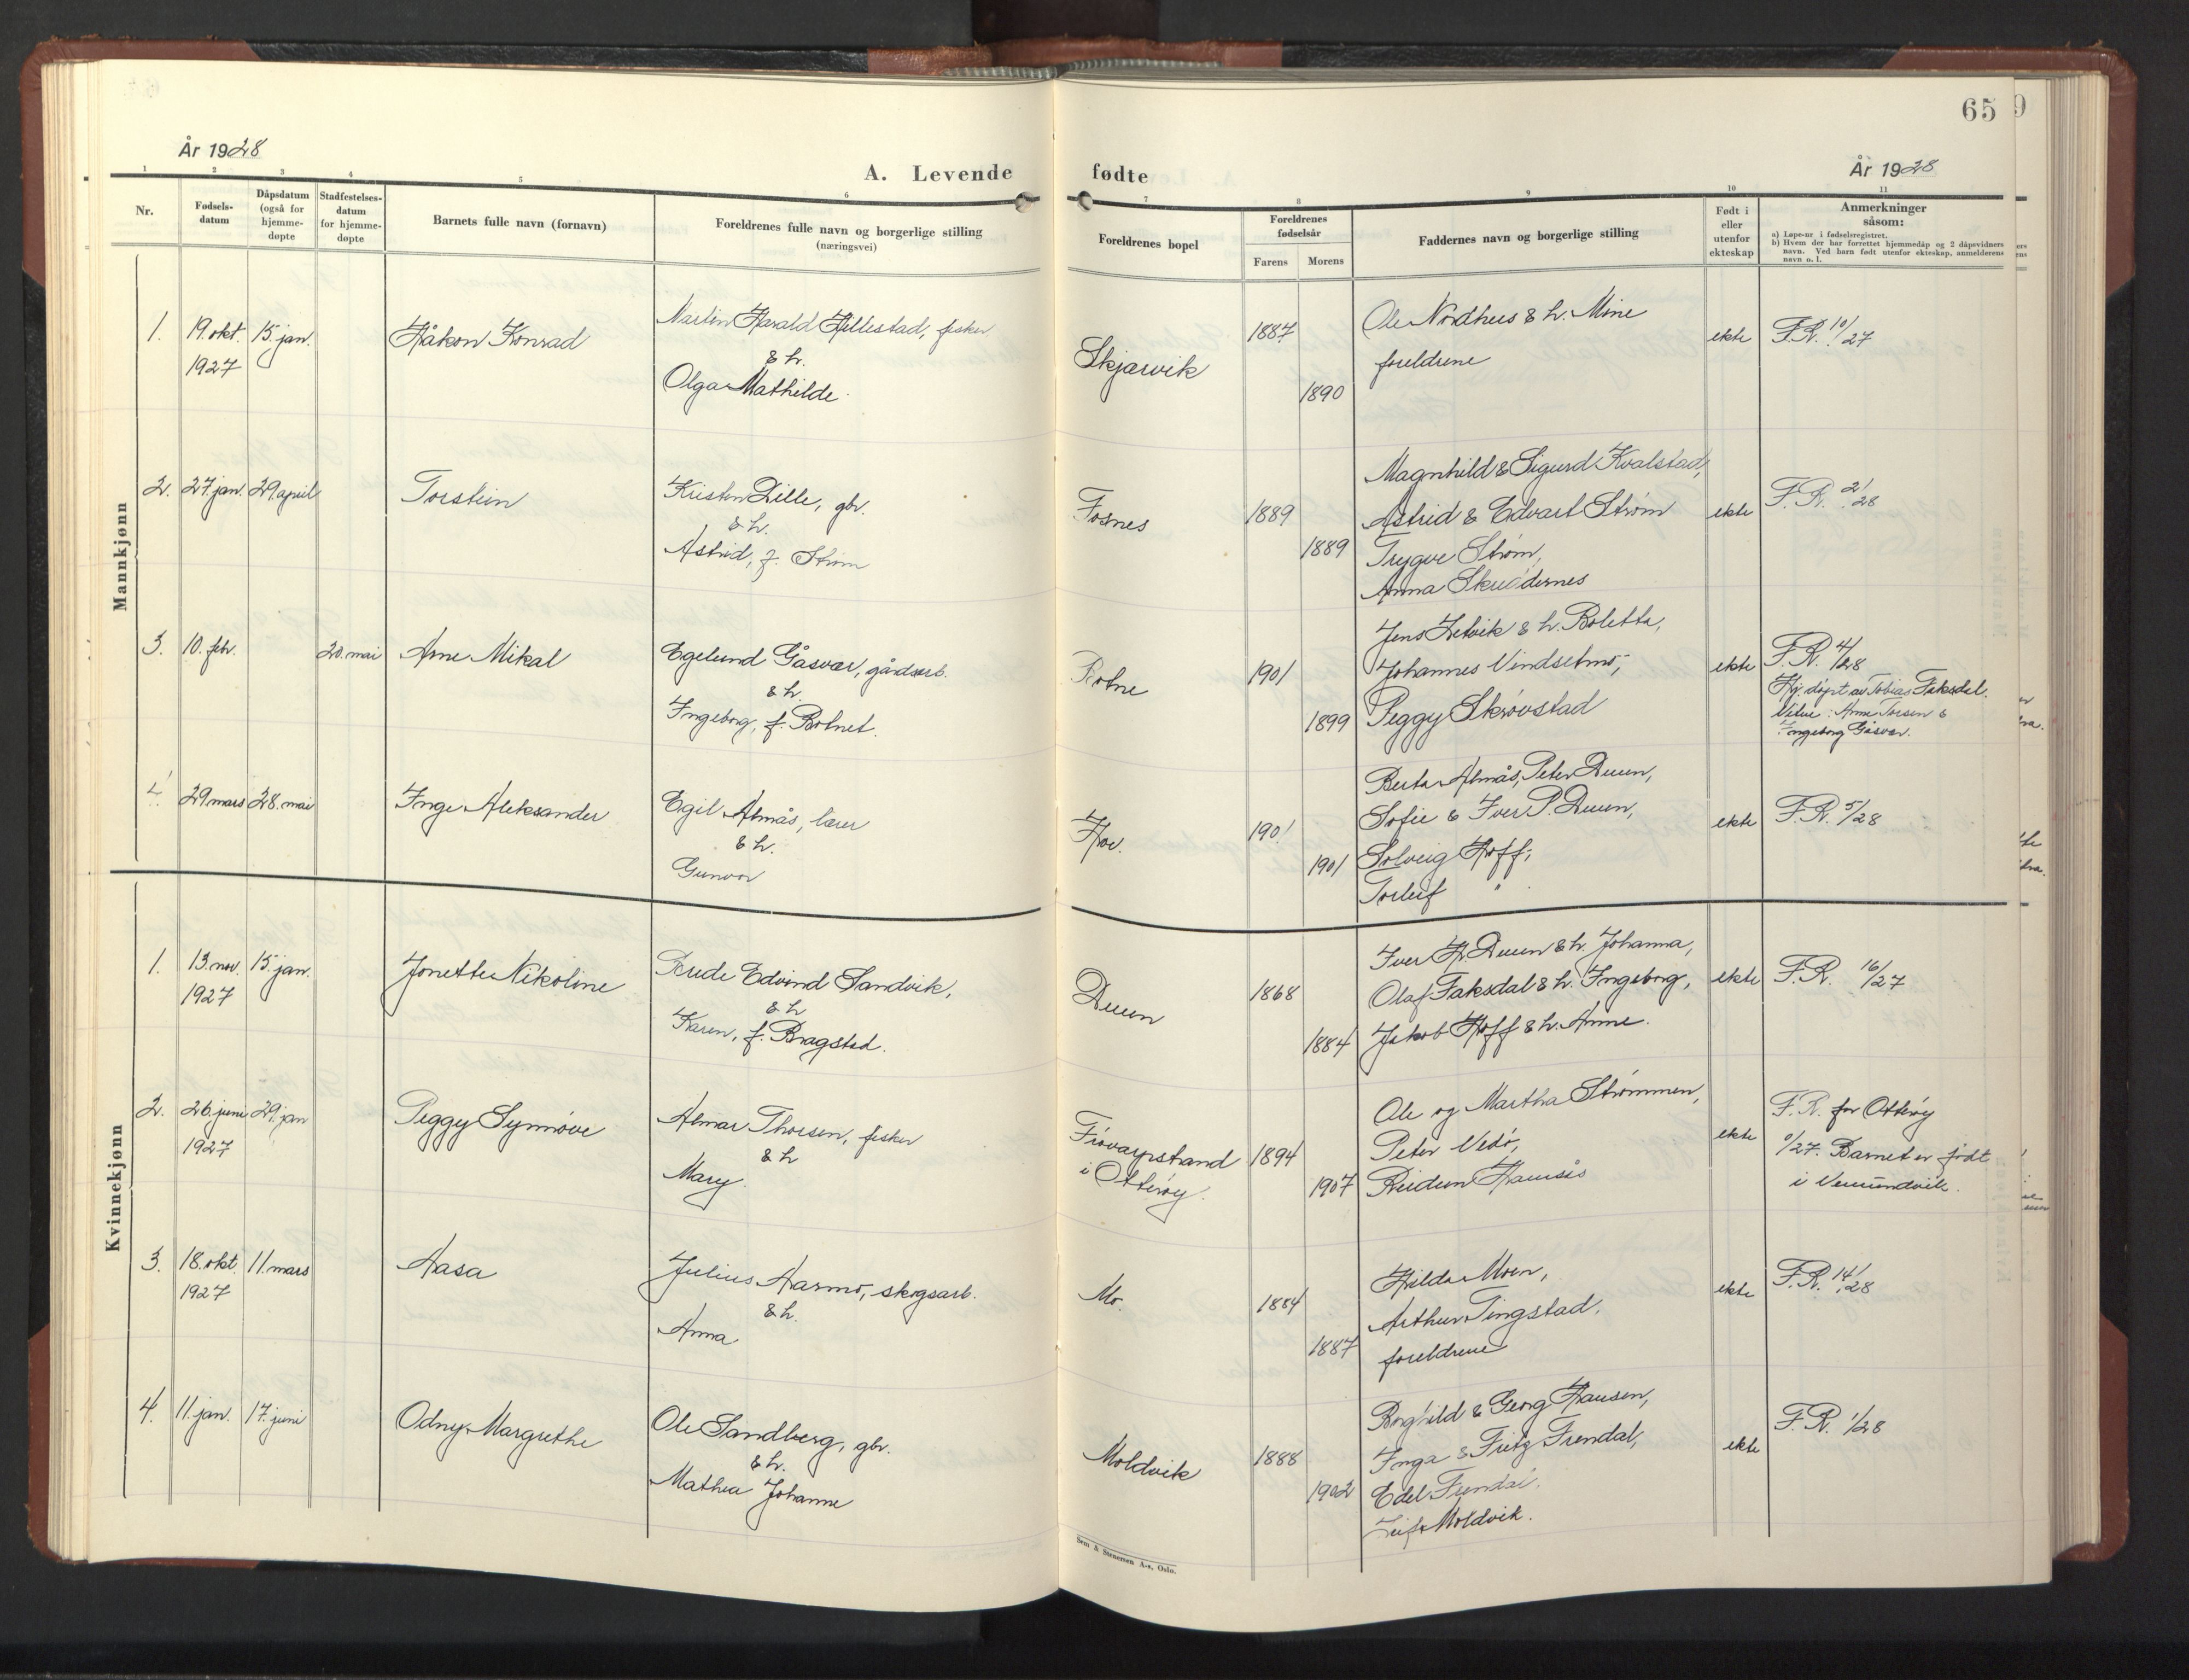 65
År 1928
A. Levende fødte
År 1928
1 2 3 4 5 6 7 8 9 10 11
Nr.
Fødsels-
datum
Dåpsdatum
(også for
hjemme-
døpte
Stadfestelses-
datum
for hjemme-
døpte
Barnets fulle navn (fornavn)
Foreldrenes fulle navn og borgerlige stilling
(næringsvei)
Foreldrenes bopel
Foreldrenes
fødselsår
Farens
Morens
Faddernes navn og borgerlige stilling
Født i
eller
utenfor
ekteskap
Anmerkninger
såsom:
a) Løpe-nr i fødselsregistret.
b) Hvem der har forrettet hjemmedåp og 2 dåpsvidners
navn. Ved barn født utenfor ekteskap, anmelderens
navn o. l.
Mannkjønn
1. 19. okt. 15. jan.
1927
Håkon Konrad
Martin Harald Hillestad, fisker
& h.
Olga Mathilde
Skjærvik
1887
1890
Ole Nordhus & h. Mine
foreldrene
ekte
F.R. 10/27
2. 27. jan. 29. april
Torstein
Kristen Lille, gbr.
& h.
Astrid, f. Strøm
Fosnes
1889
1889
Magnhild & Sigurd Kvalstad,
Astrid & Edvart Strøm
Trygve Strøm,
Anna
ekte
F.R. 2/28
3. 10. febr. 20. mai
Arne Mikal
Egelund Gåsvær, gårdsarb.
& h
Ingeborg, f. Botnet.
Botne
1901
1899
Jens Setvik & h. Boletta,
Johannes Vindsetmo,
Peggy Skrøvstad
ekte
F.R. 4/28
Hj. døpt av Tobias Faksdal.
Vitne: Anne Torsen &
Ingeborg Gåsvær.
4. 29. mars 28. mai
Inge Aleksander
Egil Almås, lærer
& h.
Gunvor
Hov.
1901
1901
Berta Almås, Peter Duun,
Sofie & Iver P. Duun,
Solveig Hoff,
Torleif "
ekte
F.R. 5/28
Kvinnekjønn
1. 13. nov. 15. jan.
1927
Jonette Nikoline
Brude Edvind Sandvik,
& h
Karen, f. Bragstad.
Duun
1868
1884
Iver H. Duun & h. Johanna,
Olaf Faksdal & h. Ingeborg,
Jakob Hoff & h. Anne.
ekte
F.R. 16/27
2. 26. juni 29. jan
1927
Peggy Synnøve
Almar Thorsen, fisker
& h
Mary.
i Otterøy.
1894
1907
Ole og Martha Strømmen,
Peter Vedø,
Reidun Hamsås
ekte
F.R. for Otterøy
0/27. Barnet er født
i Vemundvik.
3. 18. okt. 11. mars
1927
Aasa
Julius Aarmo, skogsarb.
& h.
Anna
Mo.
1884
1887
Hilda Moen,
Arthur Tingstad.
foreldrene
ekte
F.R. 14/28
4. 11. jan. 17. juni
Odny Margrethe
Ole Sandberg, gbr.
& h.
Mathea Johanne
Moldvik
1888
1902
Borghild & Georg Hansen,
Inga & Fritz Frendal,
Edel Frendal.
Leif Moldvik.
ekte
F.R. 1/28
Sem & Stenersen A-s, Oslo.